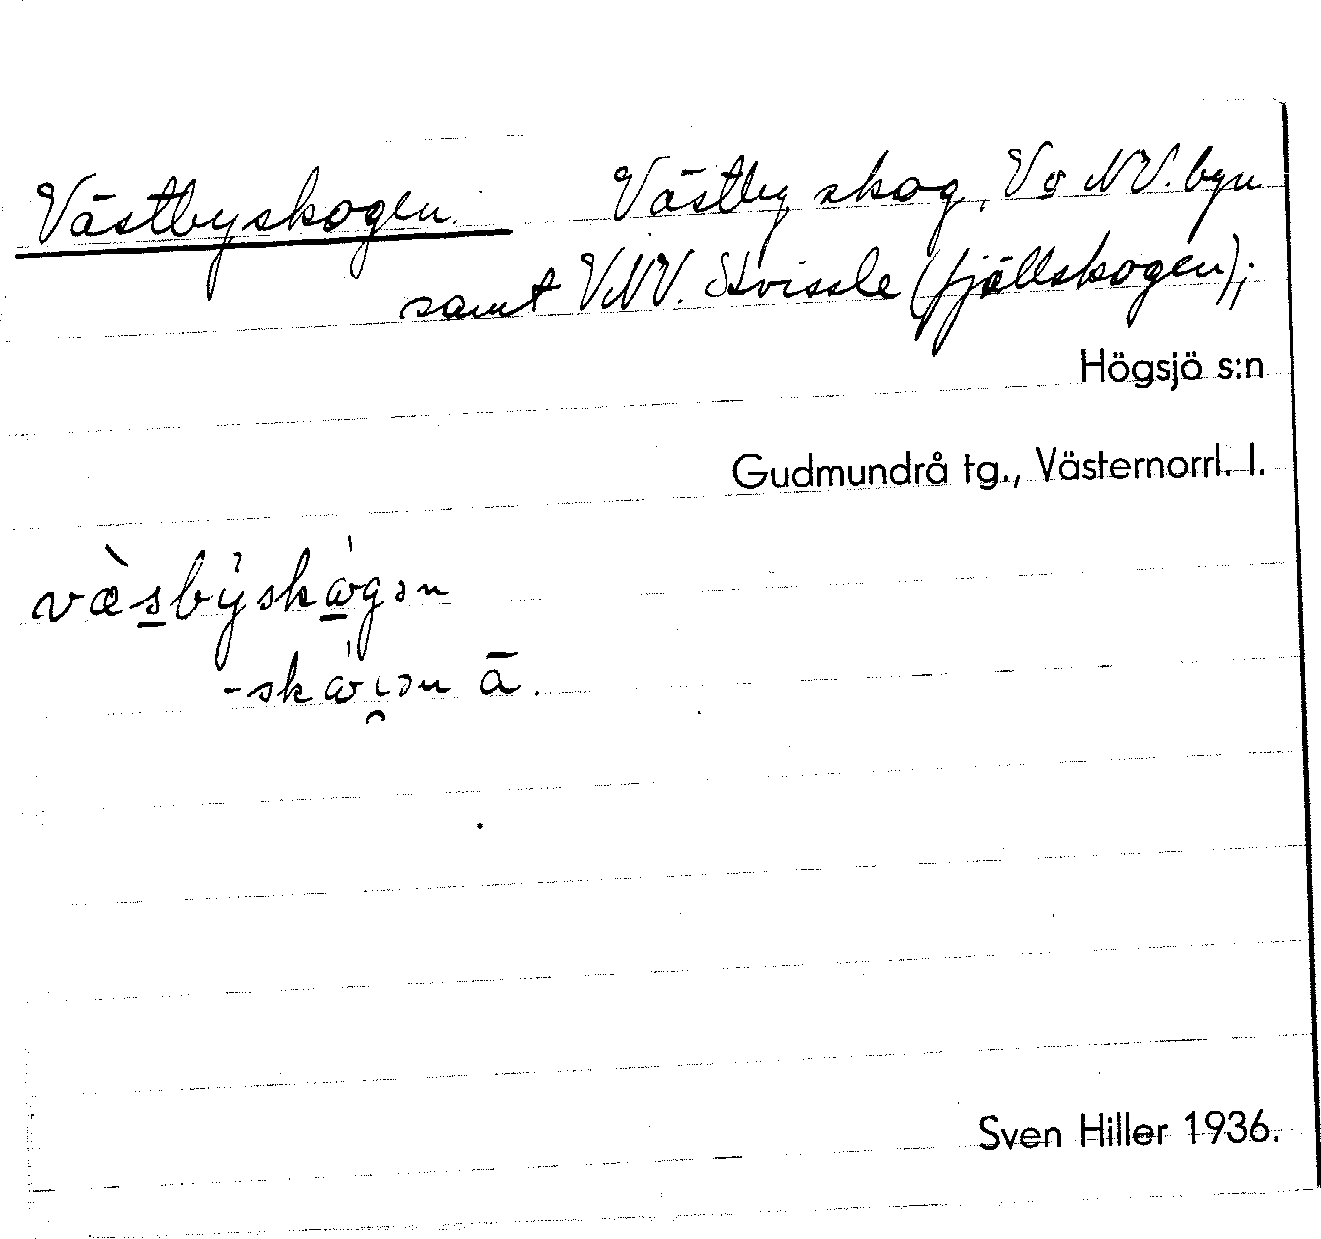 Västbyskogen. Västby skog, V o NV. byn
samt VNV. Stvissle (fjällskogen);
Högsjö s:n
Gudmundrå tg., Västernorrl. l.
væ̀s̲bẏskǻ̲gən
-skǻ̲ı̯ən ā.
Sven Hiller 1936.